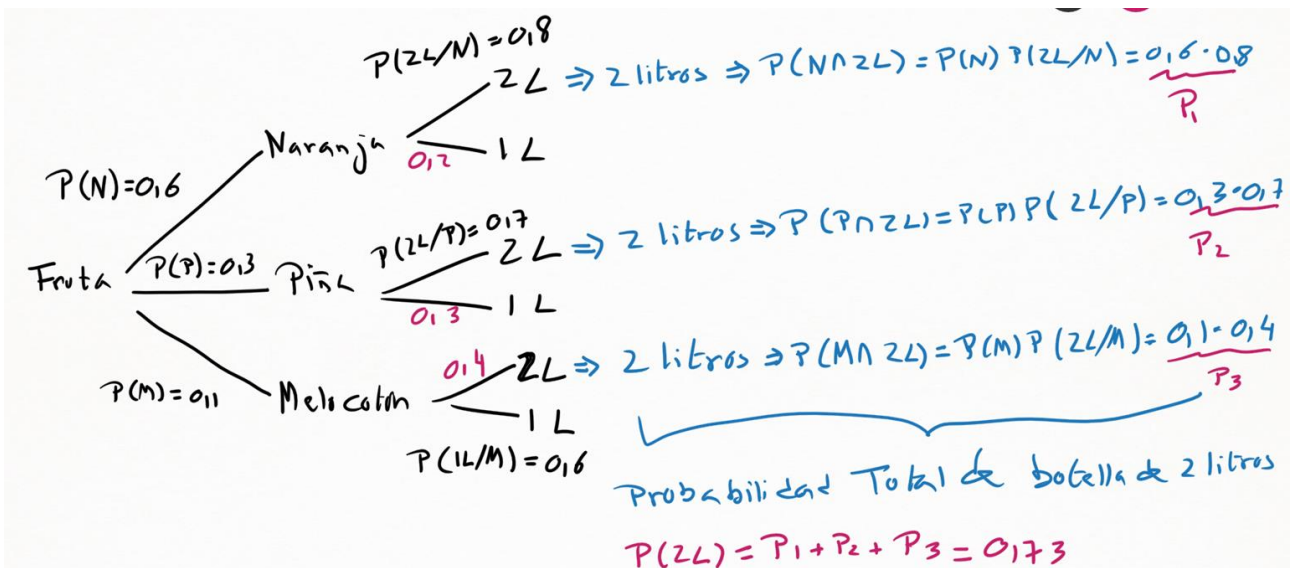 P(2L/N)=0,8
2L ⇒ 2 litros ⇒ P(N∩2L)=P(N) P(2L/N)=0,6·0,8
P1
Naranja
0,2
1L
P(N)=0,6
P(2L/P)=0,7
2L ⇒ 2 litros ⇒ P(P∩2L)=P(P) P(2L/P)=0,3·0,7
P2
Fruta
P(P)=0,3
Piña
0,3
1L
0,4
2L ⇒ 2 litros ⇒ P(M∩2L)=P(M) P(2L/M)=0,1·0,4
P3
P(M)=0,1
Melocoton
1L
P(1L/M)=0,6
Probabilidad Total de botella de 2 litros
P(2L)=P1+P2+P3=0,73